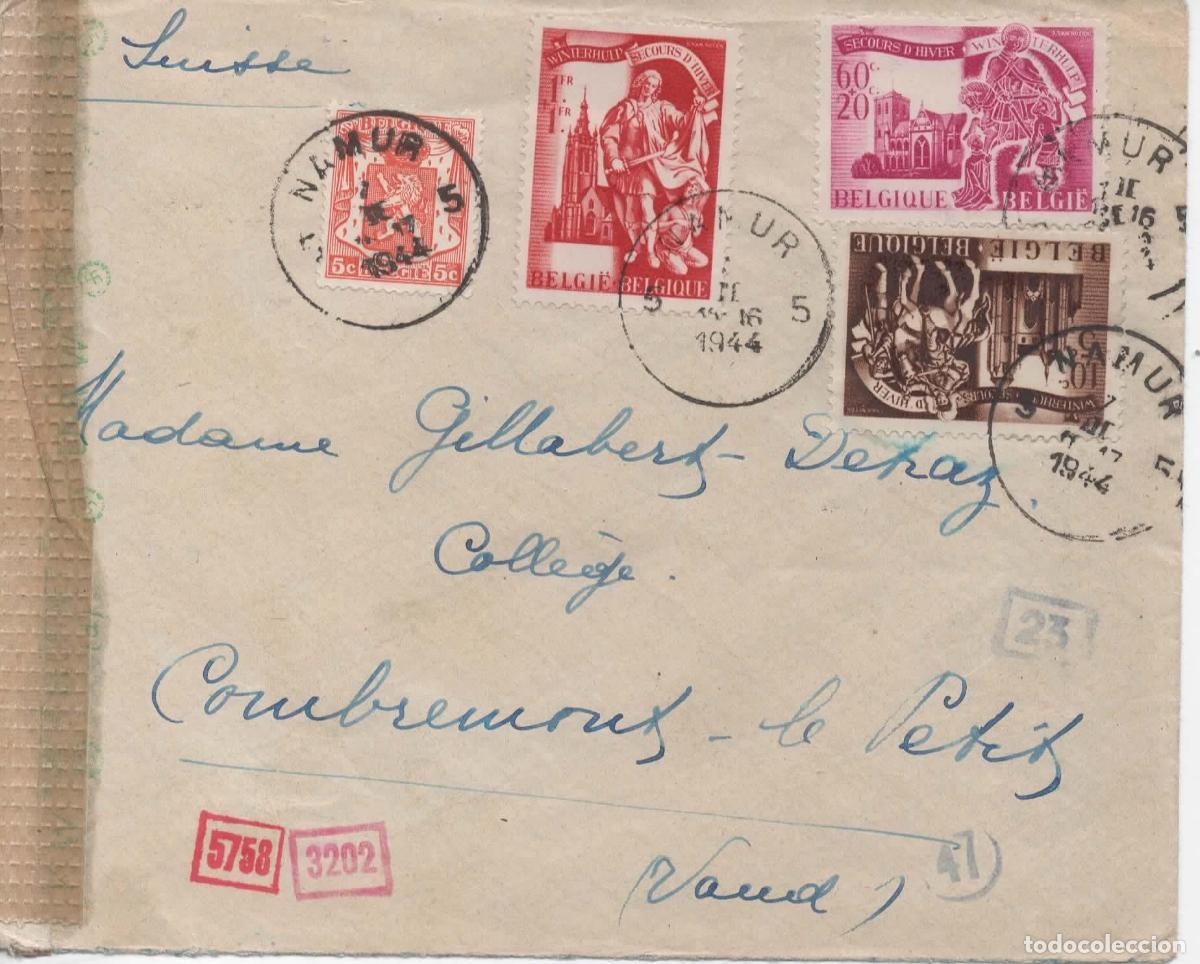 Suisse
BELGIQUE
5c BELGIE 5c
NAMUR
5
1944
WINTERHULP SECOURS D'HIVER
1 FR
1 FR
BELGIË-BELGIQUE
NAMUR
5 5
16
1944
SECOURS D'HIVER WINTERHULP
60c.
20c.
BELGIQUE BELGIË
NAMUR
16
BELGIË BELGIQUE
10c
5
WINTERHULP SECOURS D'HIVER
NAMUR
17
1944
Madame Gillabert-Detraz.
Collège.
23
Combremont-le Petit
5758
3202
(Vaud)
47
todocoleccion